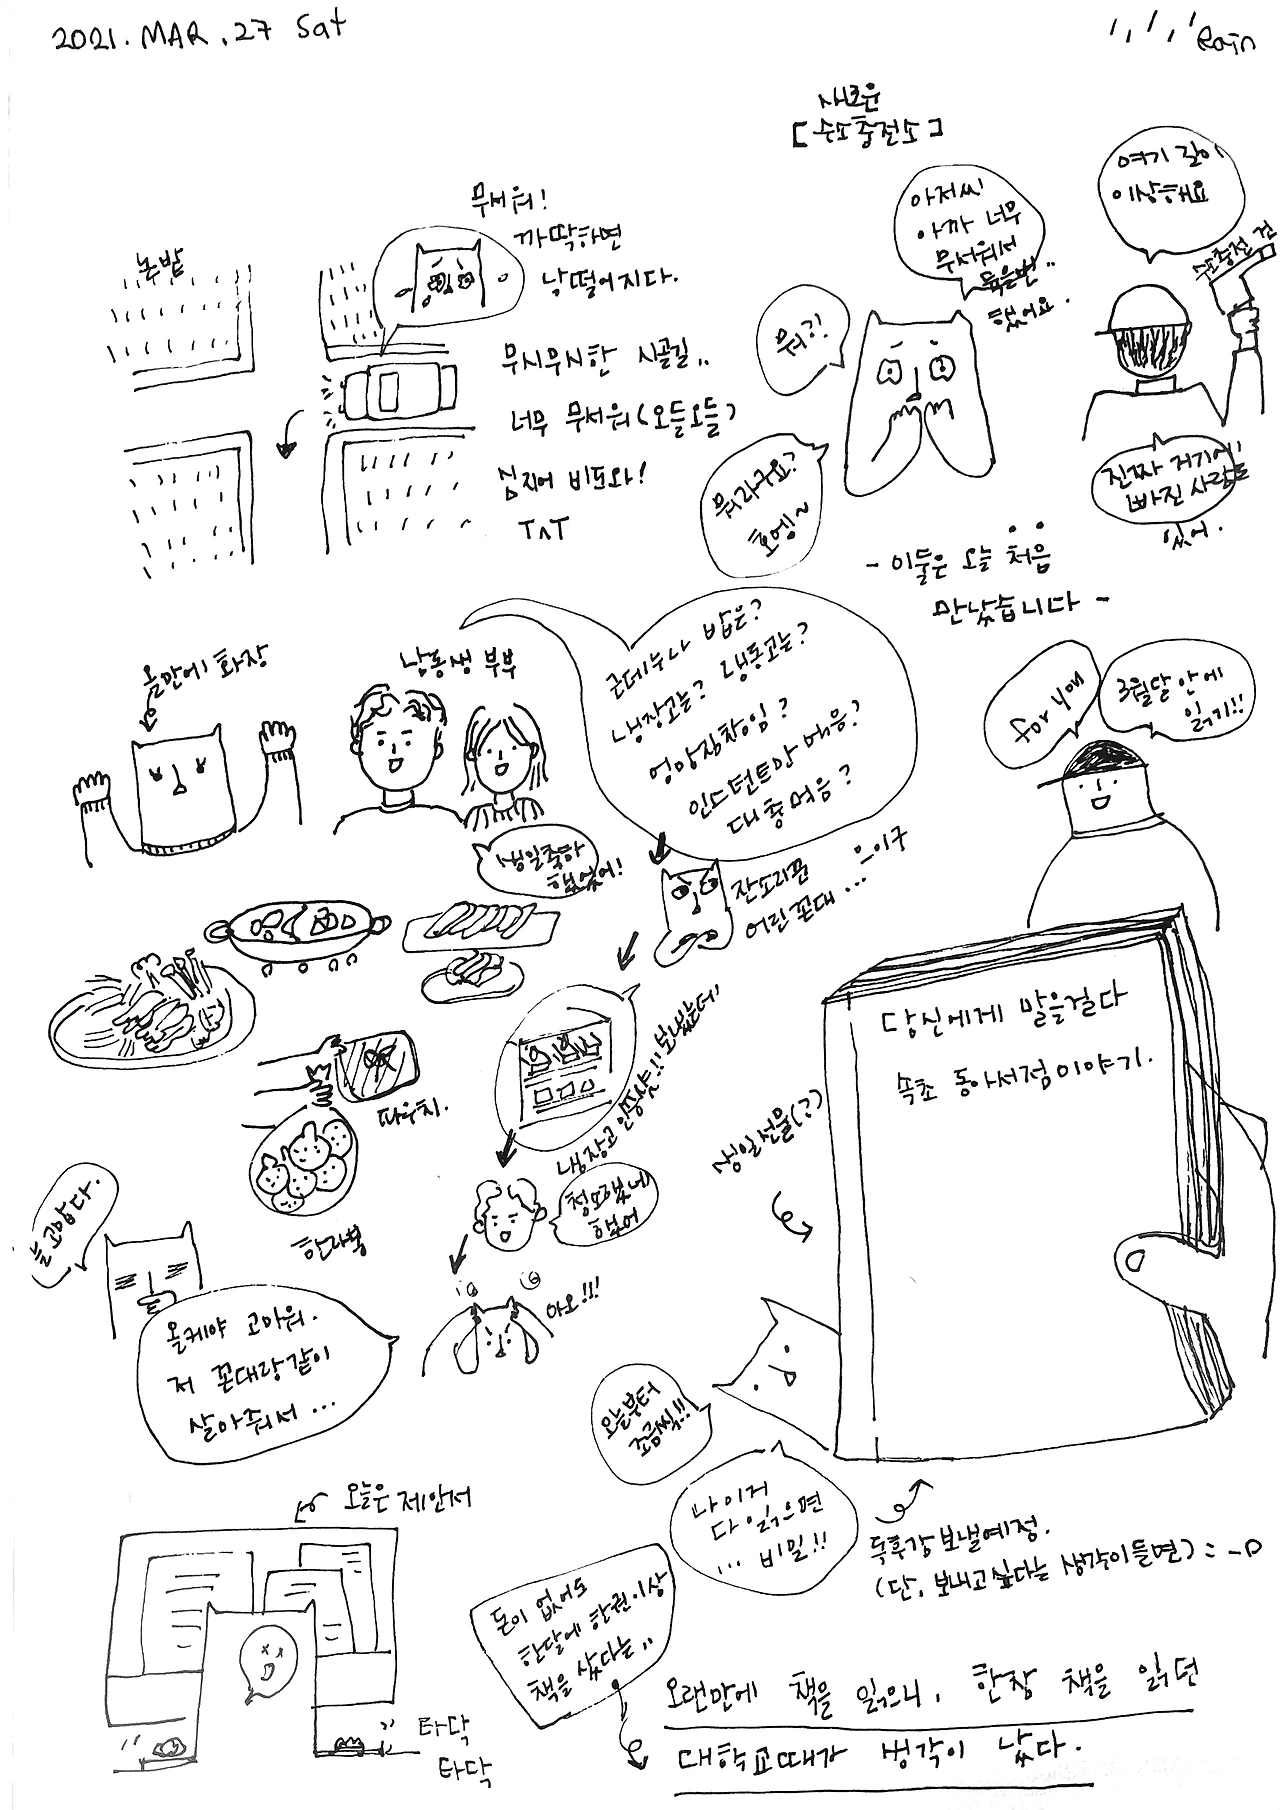 2021. MAR. 27 Sat
Rain
새로운
[수소충전소]
여기 길이
이상해요
아저씨
아까 너무
무서워서
죽을뻔..
했어요.
수소충전 건
뭐?!
뭐라구요?
호엥~
진짜 저기에
빠진 사람도
있어.
- 이둘은 오늘 처음
만났습니다 -
논밭
무서워!
까딱하면
낭떨어지다.
무시무시한 시골길..
너무 무서워(오들오들)
심지어 비도와!
TㅅT
올만에 화장
남동생 부부
근데누나 밥은?
냉장고는? 냉동고는?
엉망진창임?
인스턴트만 먹음?
대충먹음?
생일축하
했었어!
잔소리꾼
어린꼰대... 으이구
냉장고 인증샷!! 보냈는데
청소했네
했어
아오!!!
따우치.
한라봉
늘 고맙다.
올케야 고마워.
저 꼰대랑같이
살아줘서...
for 4매
3월달 안에
읽기!!
당신에게 말을걸다
속초 동아서점이야기.
생일선물(?)
오늘부터
조금씩!!
나 이거
다 읽으면
... 비밀!!
독후감 보낼예정.
(단, 보내고싶다는 생각이들면)
오늘은 제안서
타닥
타닥
돈이 없어도
한달에 한권이상
책을 샀다는..
오랜만에 책을 읽으니, 한장 책을 읽던
대학교때가 생각이 났다.